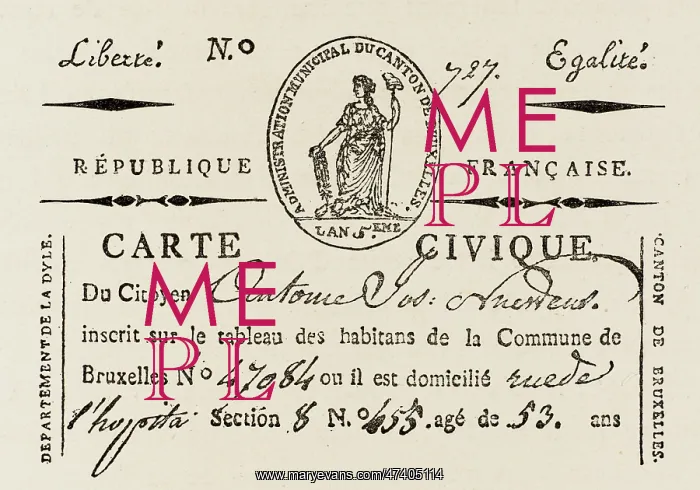 Liberté. N.º 727. Egalité.
ADMINISTRATION MUNICIPAL DU CANTON DE BRUXELLES.
RÉPUBLIQUE FRANÇAISE.
L'AN 5.EME
CARTE CIVIQUE.
DÉPARTEMENT DE LA DYLE.
Du Citoyen Antoine Jos:
inscrit sur le tableau des habitans de la Commune de
Bruxelles Nº 47084 ou il est domicilié rue de
l'hopital Section 8 N.º 655. agé de 53. ans
CANTON DE BRUXELLES.
ME
PL
ME
PL
www.maryevans.com/47405114